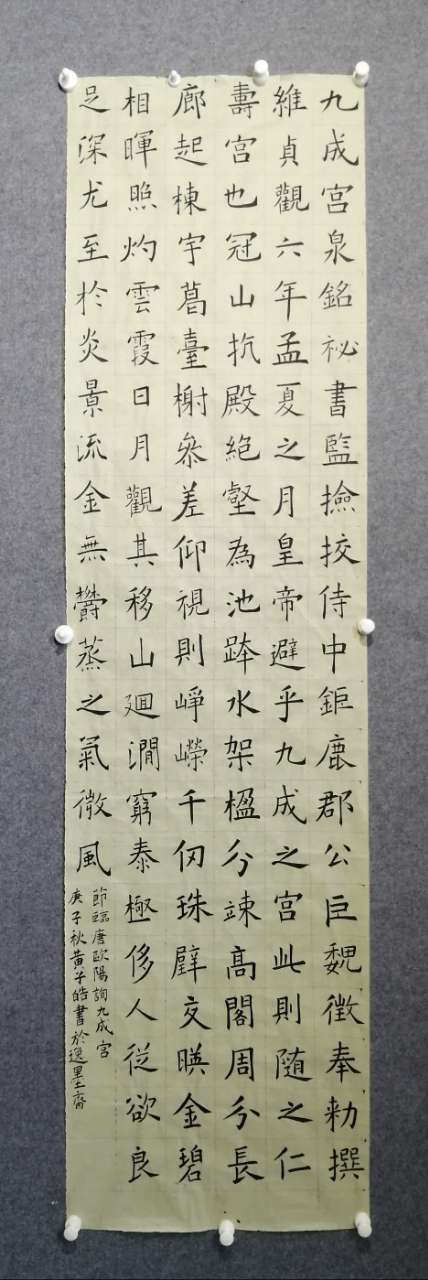 九成宮泉銘祕書監撿挍侍中鉅鹿郡公臣魏徵奉勑撰
維貞觀六年孟夏之月皇帝避乎九成之宮此則随之仁
壽宮也冠山抗殿絶壑為池跨水架楹分竦高閣周分長
廊起棟宇葛臺榭叅差仰視則崢嶸千仞珠壁交暎金碧
相暉照灼雲霞日月觀其移山廻澗窮泰極侈人從欲良
足深尤至於炎景流金無欝蒸之氣微風
節臨唐歐陽詢九成宮
庚子秋黃子皓書於逸墨齋